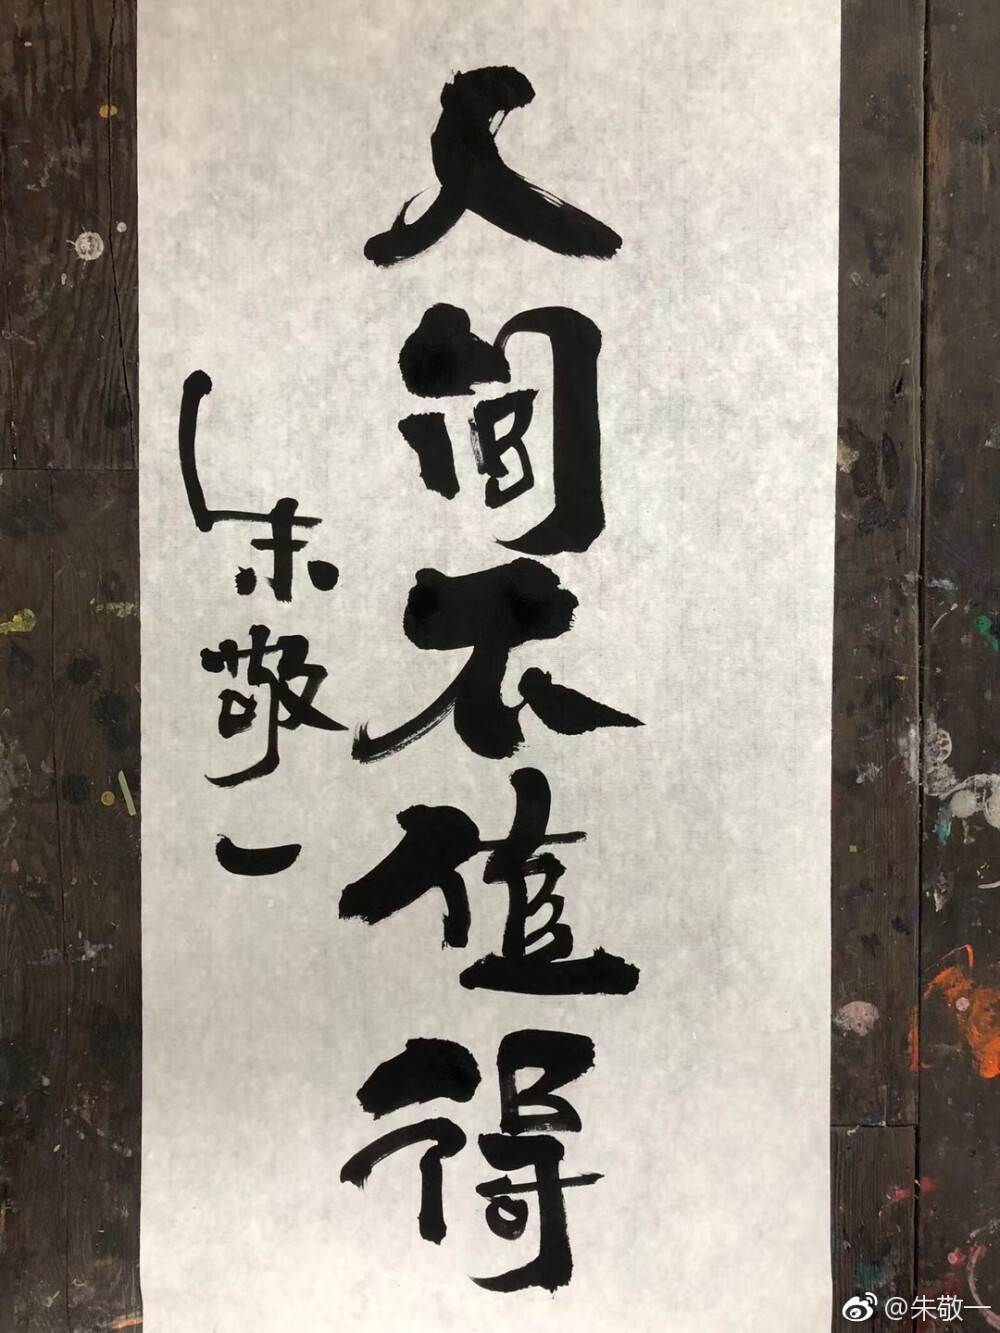 人间不值得
朱敬一
@朱敬一